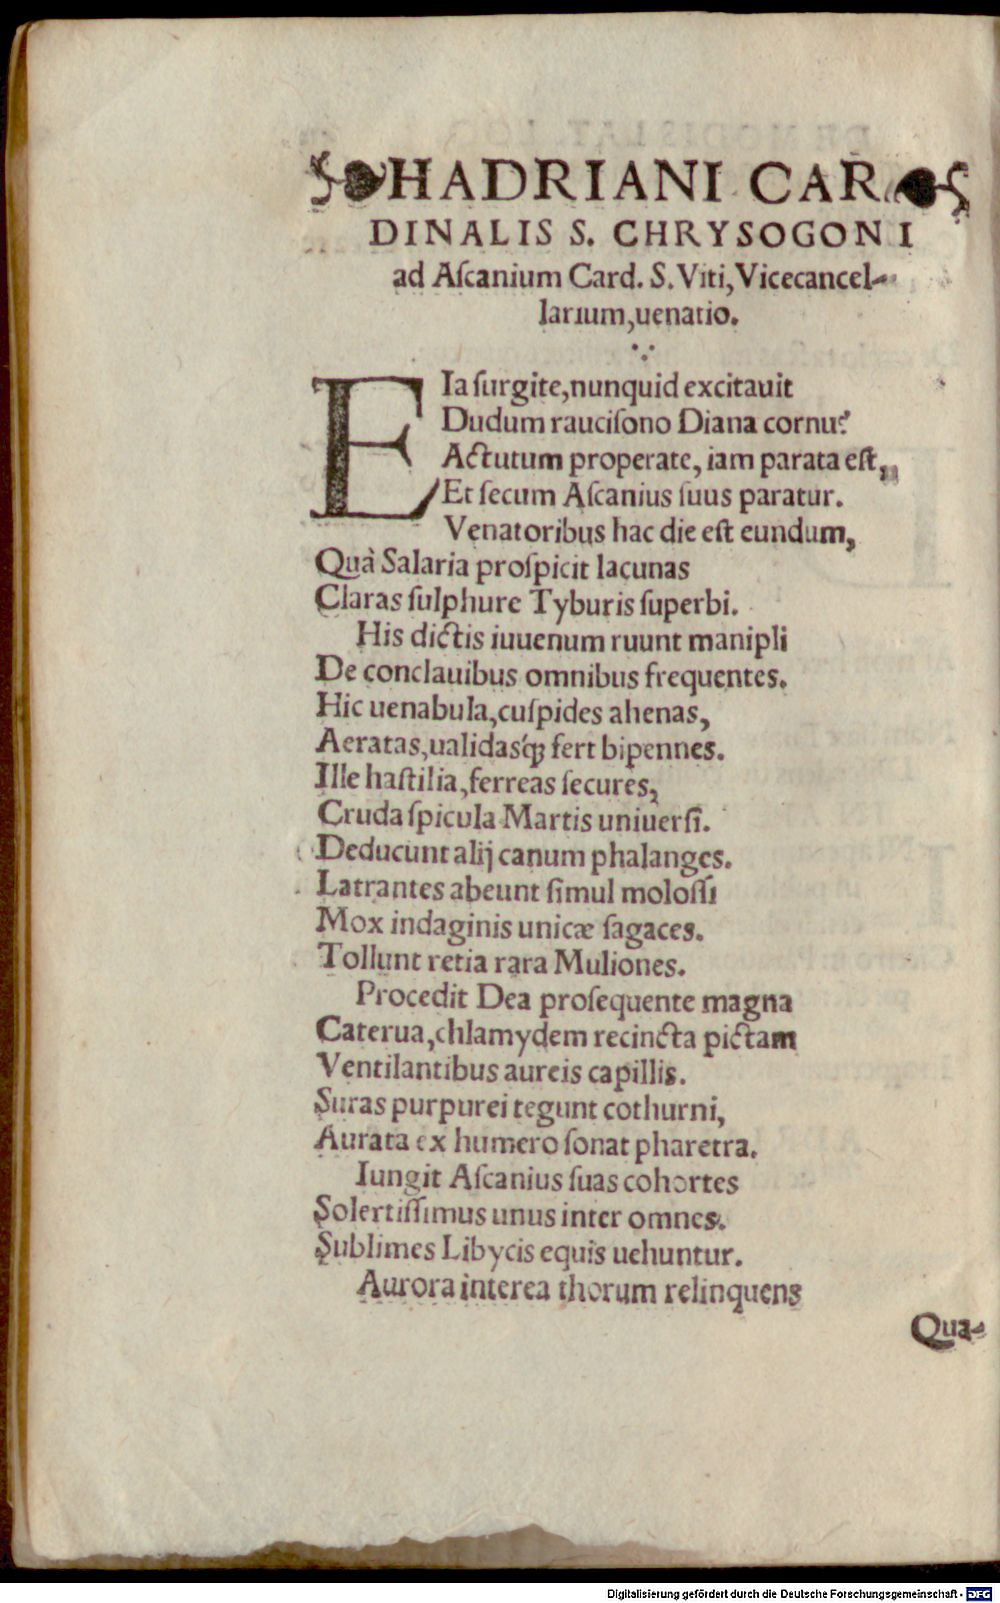 HADRIANI CAR
DINALIS S. CHRYSOGONI
ad Aſcanium Card. S. Viti, Vicecancel-
larium, uenatio.
EIa ſurgite, nunquid excitauit
Dudum rauciſono Diana cornu?
Actutum properate, iam parata eſt,
Et ſecum Aſcanius ſuus paratur.
Venatoribus hac die eſt eundum,
Quà Salaria proſpicit lacunas
Claras ſulphure Tyburis ſuperbi.
His dictis iuuenum ruunt manipli
De conclauibus omnibus frequentes.
Hic uenabula, cuſpides ahenas,
Aeratas, ualidasq́ꝫ fert bipennes.
Ille haſtilia, ferreas ſecures,
Cruda ſpicula Martis uniuerſi.
Deducunt alij canum phalanges.
Latrantes abeunt ſimul moloſſi
Mox indaginis unicæ ſagaces.
Tollunt retia rara Muliones.
Procedit Dea proſequente magna
Caterua, chlamydem recincta pictam
Ventilantibus aureis capillis.
Suras purpurei tegunt cothurni,
Aurata ex humero ſonat pharetra.
Iungit Aſcanius ſuas cohortes
Solertiſſimus unus inter omnes.
Sublimes Libycis equis uehuntur.
Aurora interea thorum relinquens
Qua-
Digitalisierung gefördert durch die Deutsche Forschungsgemeinschaft - DFG